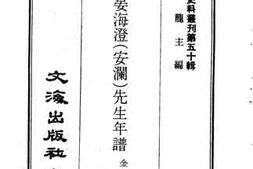 史料叢刊第五十輯
龍主編
晏海澄(安瀾)先生年譜
金
文海出版社